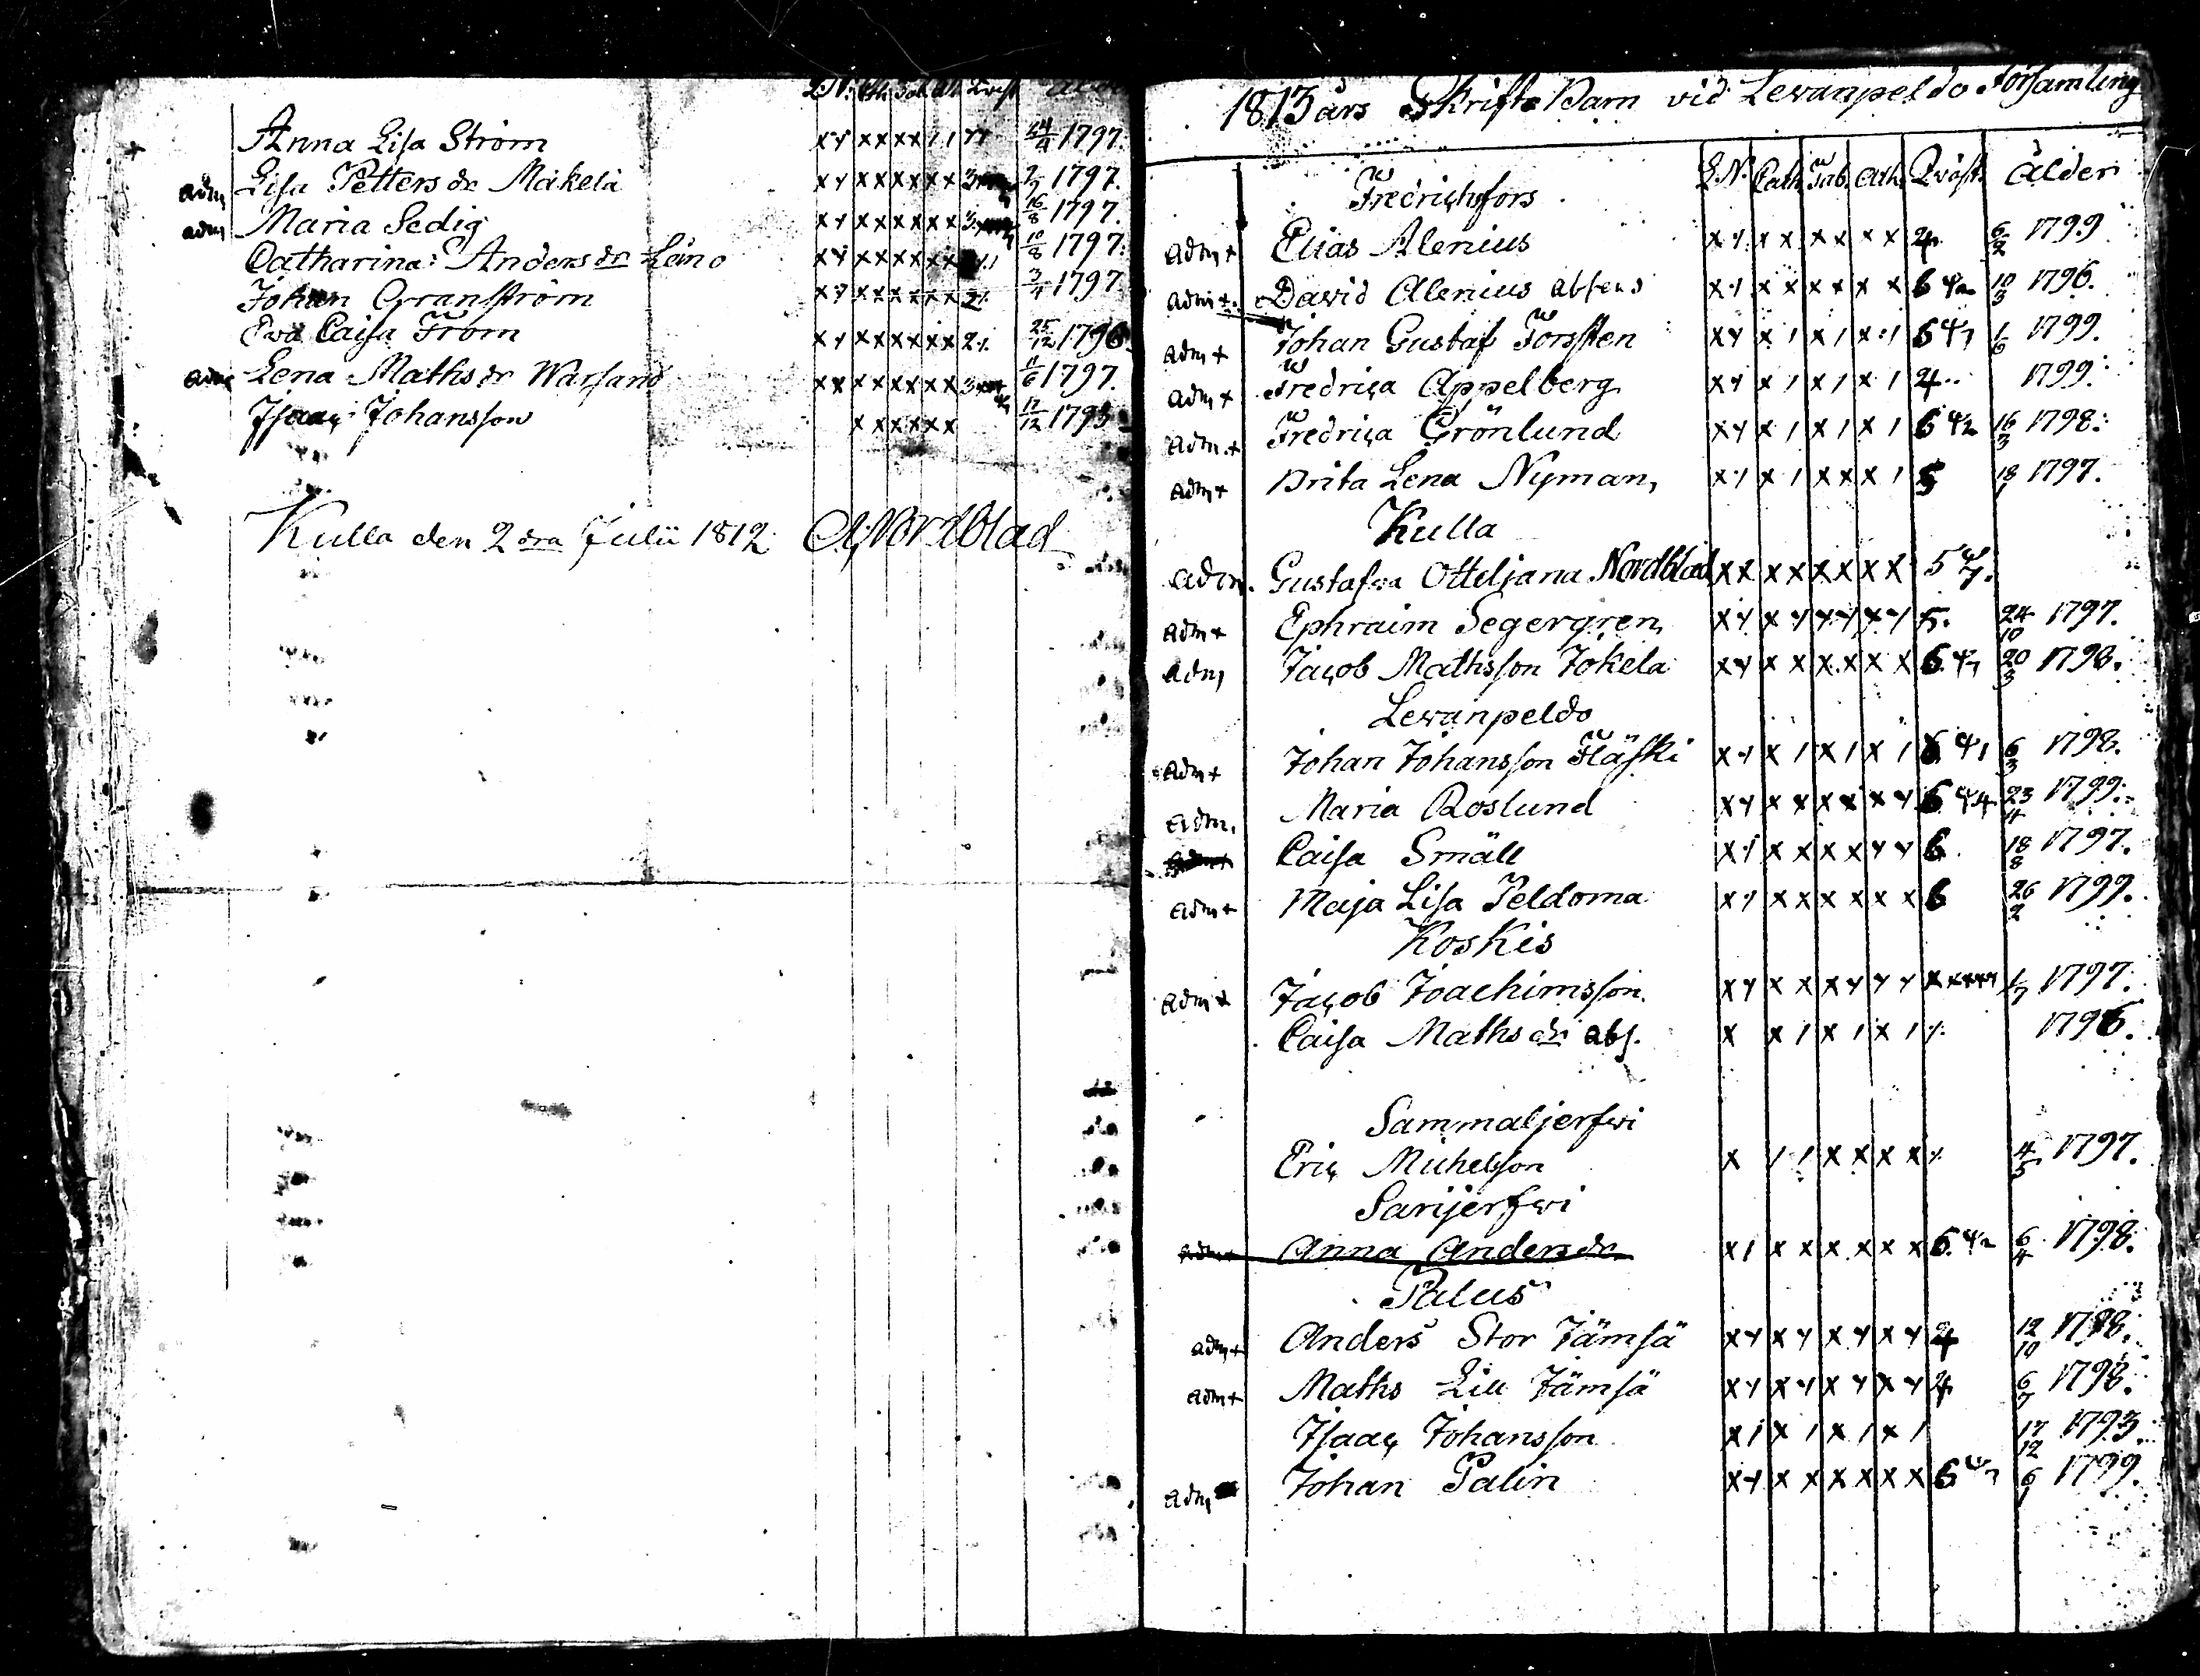 Anna Lisa Ström xy xx xx // 24/4 1797.
adm Lisa Petters dr Mäkelä xy xx xx xx 3 2/7 1797.
adm Maria Sedig xy xx xx xx 3 16/8 1797.
Catharina Anders dr Leino xy xx xx xx 10/8 1797.
Johan Granström xy xx xx xx 2 3/4 1797
Eva Caisa From xy xx xx xx 2 25/12 1796
adm Lena Maths dr Warsand xx xx xx xx 3 11/6 1797.
Isaac Johansson xx xx xx 17/12 1793
Kulla den 2 dra Julii 1812. A Nordblad
1813 års Skrifte Barn vid Lewanpeldo Församling
Fredrichsfors S.N. Cath. Tab. Ath. Qwäst. Ålder
adm+ Elias Alenius xy xx xx xx 4 6/2 1799
adm+ David Alenius absens x/ xx xx xx 6 10/3 1796.
adm+ Johan Gustaf Forssten xy x/ x/ x/ 6 1/6 1799.
adm+ Fredrica Appelberg xy x/ x/ x/ 4 1799.
adm+ Fredrica Grönlund xy x/ x/ x/ 6 16/3 1798.
adm+ Brita Lena Nyman x/ x/ xx x/ 5 18/1 1797.
Kulla
adm. Gustafva Otteljana Nordblad xx xx xx xx 5
adm+ Ephraim Segergren xy xy yy xy 5. 24/10 1797.
adm Jacob Mathsson Jokela xy xx xx xx 6 20/3 1798.
Lewanpeldo
adm+ Johan Johansson Fläski x/ x/ x/ x/ 6 6/3 1798.
adm. Maria Roslund xy xx xx xy 6 23/4 1799.
Caisa Smäll x/ xx xx yy 6 18/8 1797.
adm+ Maja Lisa Peldoma x/ xx xx xx 6 26/2 1799.
Koskis
adm+ Jacob Joachimsson xy xx xy yy 1/7 1797.
Caisa Maths dr abs. x x/ x/ x/ 1796.
Sammaljerfwi
Eric Michelsson x // xx xx 4/5 1797.
Sarijerfwi
adm+ Anna Anders dr x/ xx xx xx 6 6/4 1798.
Palus
adm+ Anders Stor Jämsä xy xy xy xy 4 12/10 1798.
adm+ Maths Lill Jämsä xy xy xy xy 4 6/7 1798.
Isaac Johansson x/ x/ x/ x/ 17/12 1793.
adm Johan Palin xy xx xx xx 6 6/1 1799.